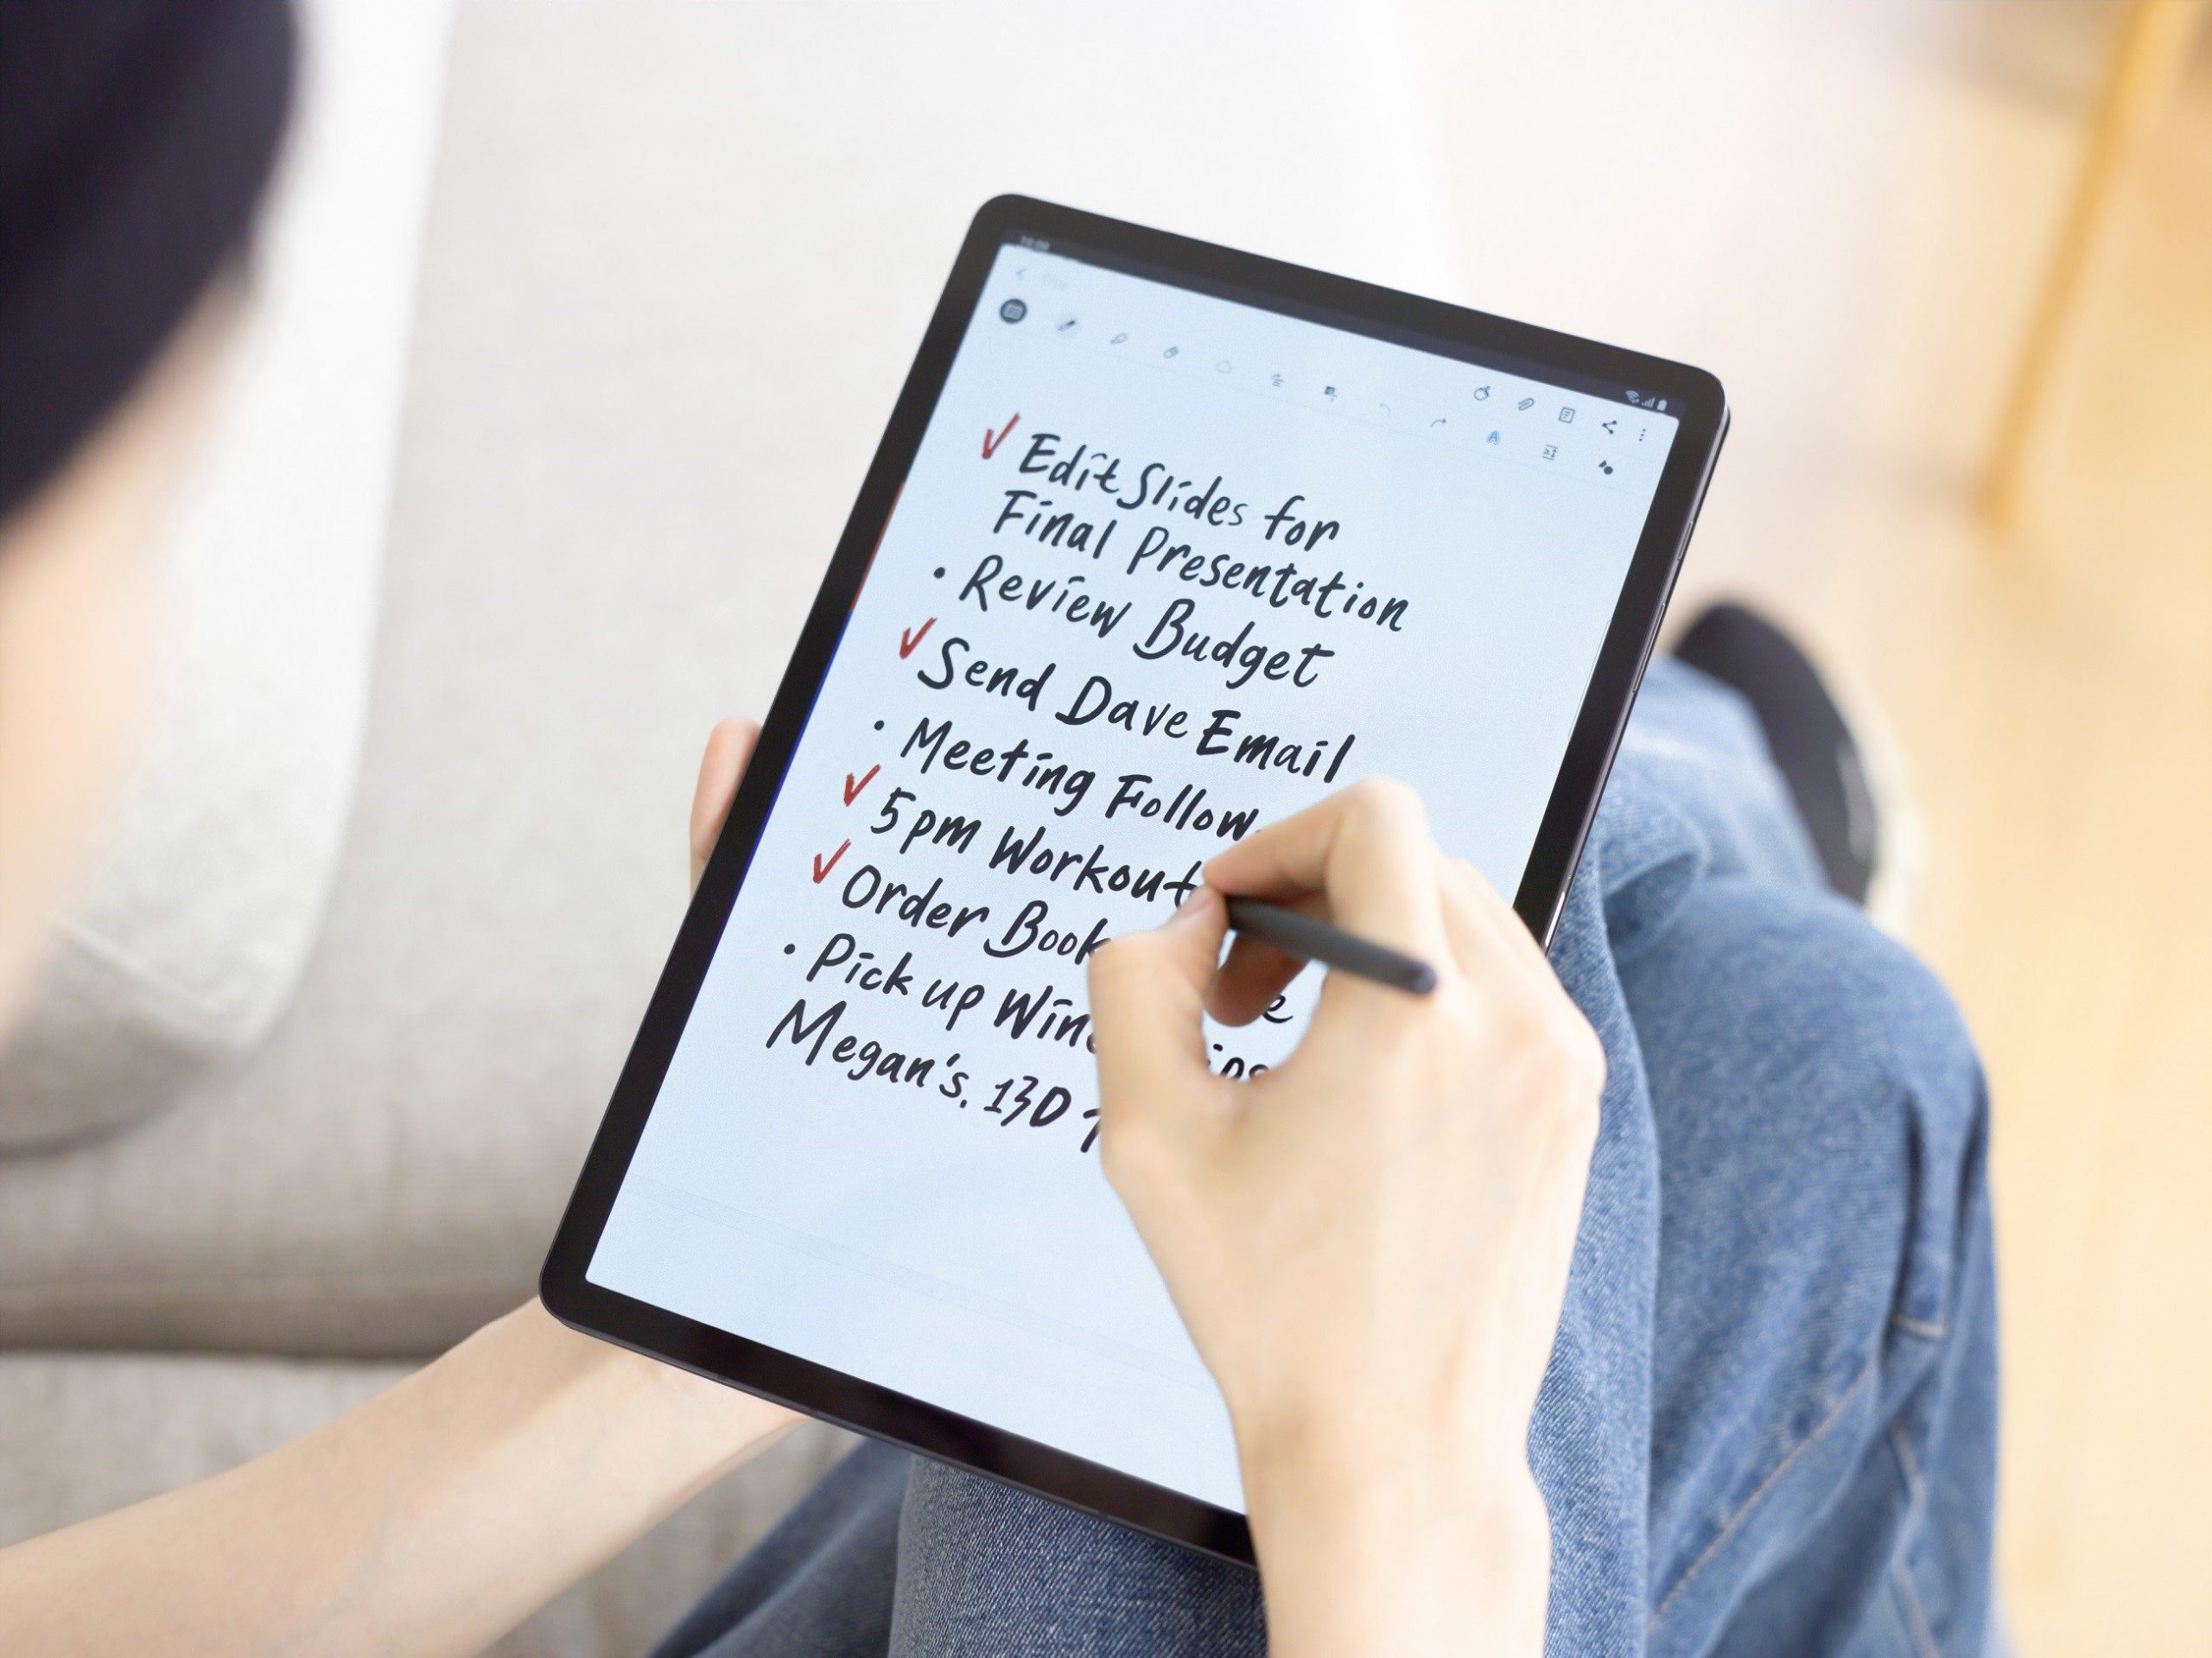 ✓ Edit Slides for
Final Presentation
• Review Budget
✓ Send Dave Email
• Meeting Follow
✓ 5pm Workout
✓ Order Book
• Pick up Wine
Megan's. 13D